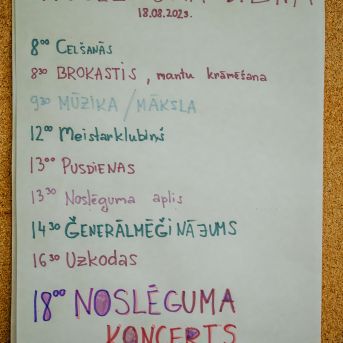 18.08.2023.
8⁰⁰ CELŠANĀS
8³⁰ BROKASTIS, mantu krāmēšana
9³⁰ MŪZIKA / MĀKSLA
12⁰⁰ Meistarklubiņš
13⁰⁰ PUSDIENAS
13³⁰ Noslēguma aplis
14³⁰ ĢENERĀLMĒĢINĀJUMS
16³⁰ Uzkodas
18⁰⁰ NOSLĒGUMA
KONCERTS